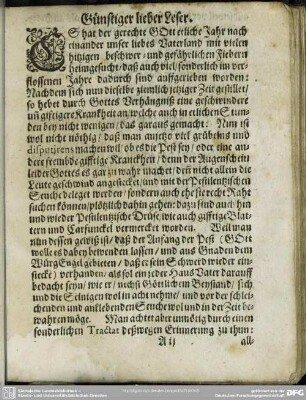 Günstiger lieber Leser.
ES hat der gerechte GOtt etliche Jahr nach
einander unser liebes Vaterland mit vielen
hitzigen beschwer- und gefährlichen Fiebern
heimgesucht/ daß auch viel/ sonderlich im ver-
flossenen Jahre dadurch sind auffgerieben worden:
Nachdem sich nun dieselbe ziemlich jetziger Zeit gestillet/
so hebet durch Gottes Verhängniß eine geschwindere
un̄ gifftigere Kranckheit an/ welche auch in etlichen Stun-
den bey nicht wenigen/ das garaus gemacht: Nun ist
wol nicht nöthig/ daß man anietzo viel grübelns und
disputirens machen wil/ ob es die Pest sey/ oder eine an-
dere frembde gifftige Kranckheit/ denn der Augenschein
leider Gottes es gar zu wahr machet/ den̄ nicht allein die
Leute geschwind angestecket/ und mit der Pestilentzischen
Seuche beleget werden/ sondern auch ehe sie recht Raht
suchen können/ plötzlich dahin gehen: dazu sind auch hin
und wieder Pestilentzische Drüse/ wie auch gifftige Blat-
tern und Carfunckel vermercket worden. Weil man
nun dessen gewiß ist/ daß der Anfang der Pest (GOtt
wolle es dabey bewenden lassen/ und aus Gnaden dem
Würg Engel gebieten/ daß er sein Schwerd wieder ein-
stecke) verhanden/ als sol ein jeder Haus Vater darauff
bedacht seyn/ wie er/ nechst Göttlichem Beystand/ sich
und die Seinigen wol in acht nehme/ und vor der schlei-
chenden und anklebenden Seuche wol und in der Zeit be-
wahren möge. Man achtet aber unnötig durch einen
sonderlichen Tractat deßwegen Erinnerung zu thun:
A ij all-